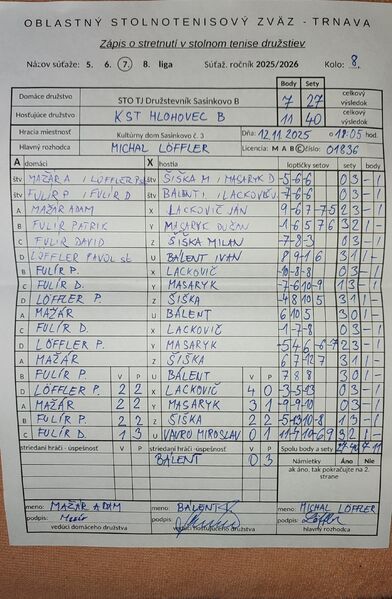 OBLASTNÝ STOLNOTENISOVÝ ZVÄZ - TRNAVA
Zápis o stretnutí v stolnom tenise družstiev
Názov súťaže: 5. 6. 7. 8. liga Súťaž. ročník 2025/2026 Kolo: 8.
Body Sety
Domáce družstvo STO TJ Družstevník Sasinkovo B 7 27 celkový výsledok
Hosťujúce družstvo KST HLOHOVEC B 11 40 celkový výsledok
Hracia miestnosť Kultúrny dom Sasinkovo č. 3 Dňa: 12.11.2025 o 18:05 hod.
Hlavný rozhodca MICHAL LÖFFLER Licencia: M A B C číslo: 01836
A domáci X hostia loptičky setov sety body
štv MAŽÁR A LÖFFLER P ŠIŠKA M MASARYK D -5-6-6 03 -1
štv FULÍR P FULÍR D BÁLENT I -7-6-6 03 -1
A MAŽÁR ADAM X LACKOVIČ JÁN 23 -1
B FULÍR PATRIK Y MASARYK DUŠAN 32 1-
C FULÍR DAVID Z ŠIŠKA MILAN -7-8-3 03 -1
D LÖFFLER PAVOL st. U BÁLENT IVAN 8 9 -1 6 31 1-
B FULÍR P. X LACKOVIČ -10-8-8 03 -1
C FULÍR D. Y MASARYK -7-6 10-9 13 -1
D LÖFFLER P. Z ŠIŠKA -4 8 10 5 31 1-
A MAŽÁR U BÁLENT 6 10 5 30 1-
C FULÍR D. X LACKOVIČ -1-7-8 03 -1
D LÖFFLER P. Y MASARYK 23 -1
A MAŽÁR Z ŠIŠKA 6 7-12 7 31 1-
B FULÍR P. V P U BÁLENT V P 7 8 8 30 1-
D LÖFFLER P. 2 2 X LACKOVIČ 4 0 -3-5-13 03 -1
A MAŽÁR 2 2 Y MASARYK 3 1 -9-9-10 03 -1
B FULÍR P. 2 2 Z ŠIŠKA 2 2 -5-13 10-8 13 -1
C FULÍR D. 1 3 U VAVRO MIROSLAV 0 1 32 1-
striedaní hráči - úspešnosť V P striedaní hráči - úspešnosť V P Spolu body a sety 27 40 7 11
BÁLENT 0 3 Námietky Áno Nie
ak áno, tak pokračujte na 2. strane
meno: MAŽÁR ADAM meno: BÁLENT meno: MICHAL LÖFFLER
podpis: podpis: podpis: Löffler
vedúci domáceho družstva vedúci hosťujúceho družstva hlavný rozhodca